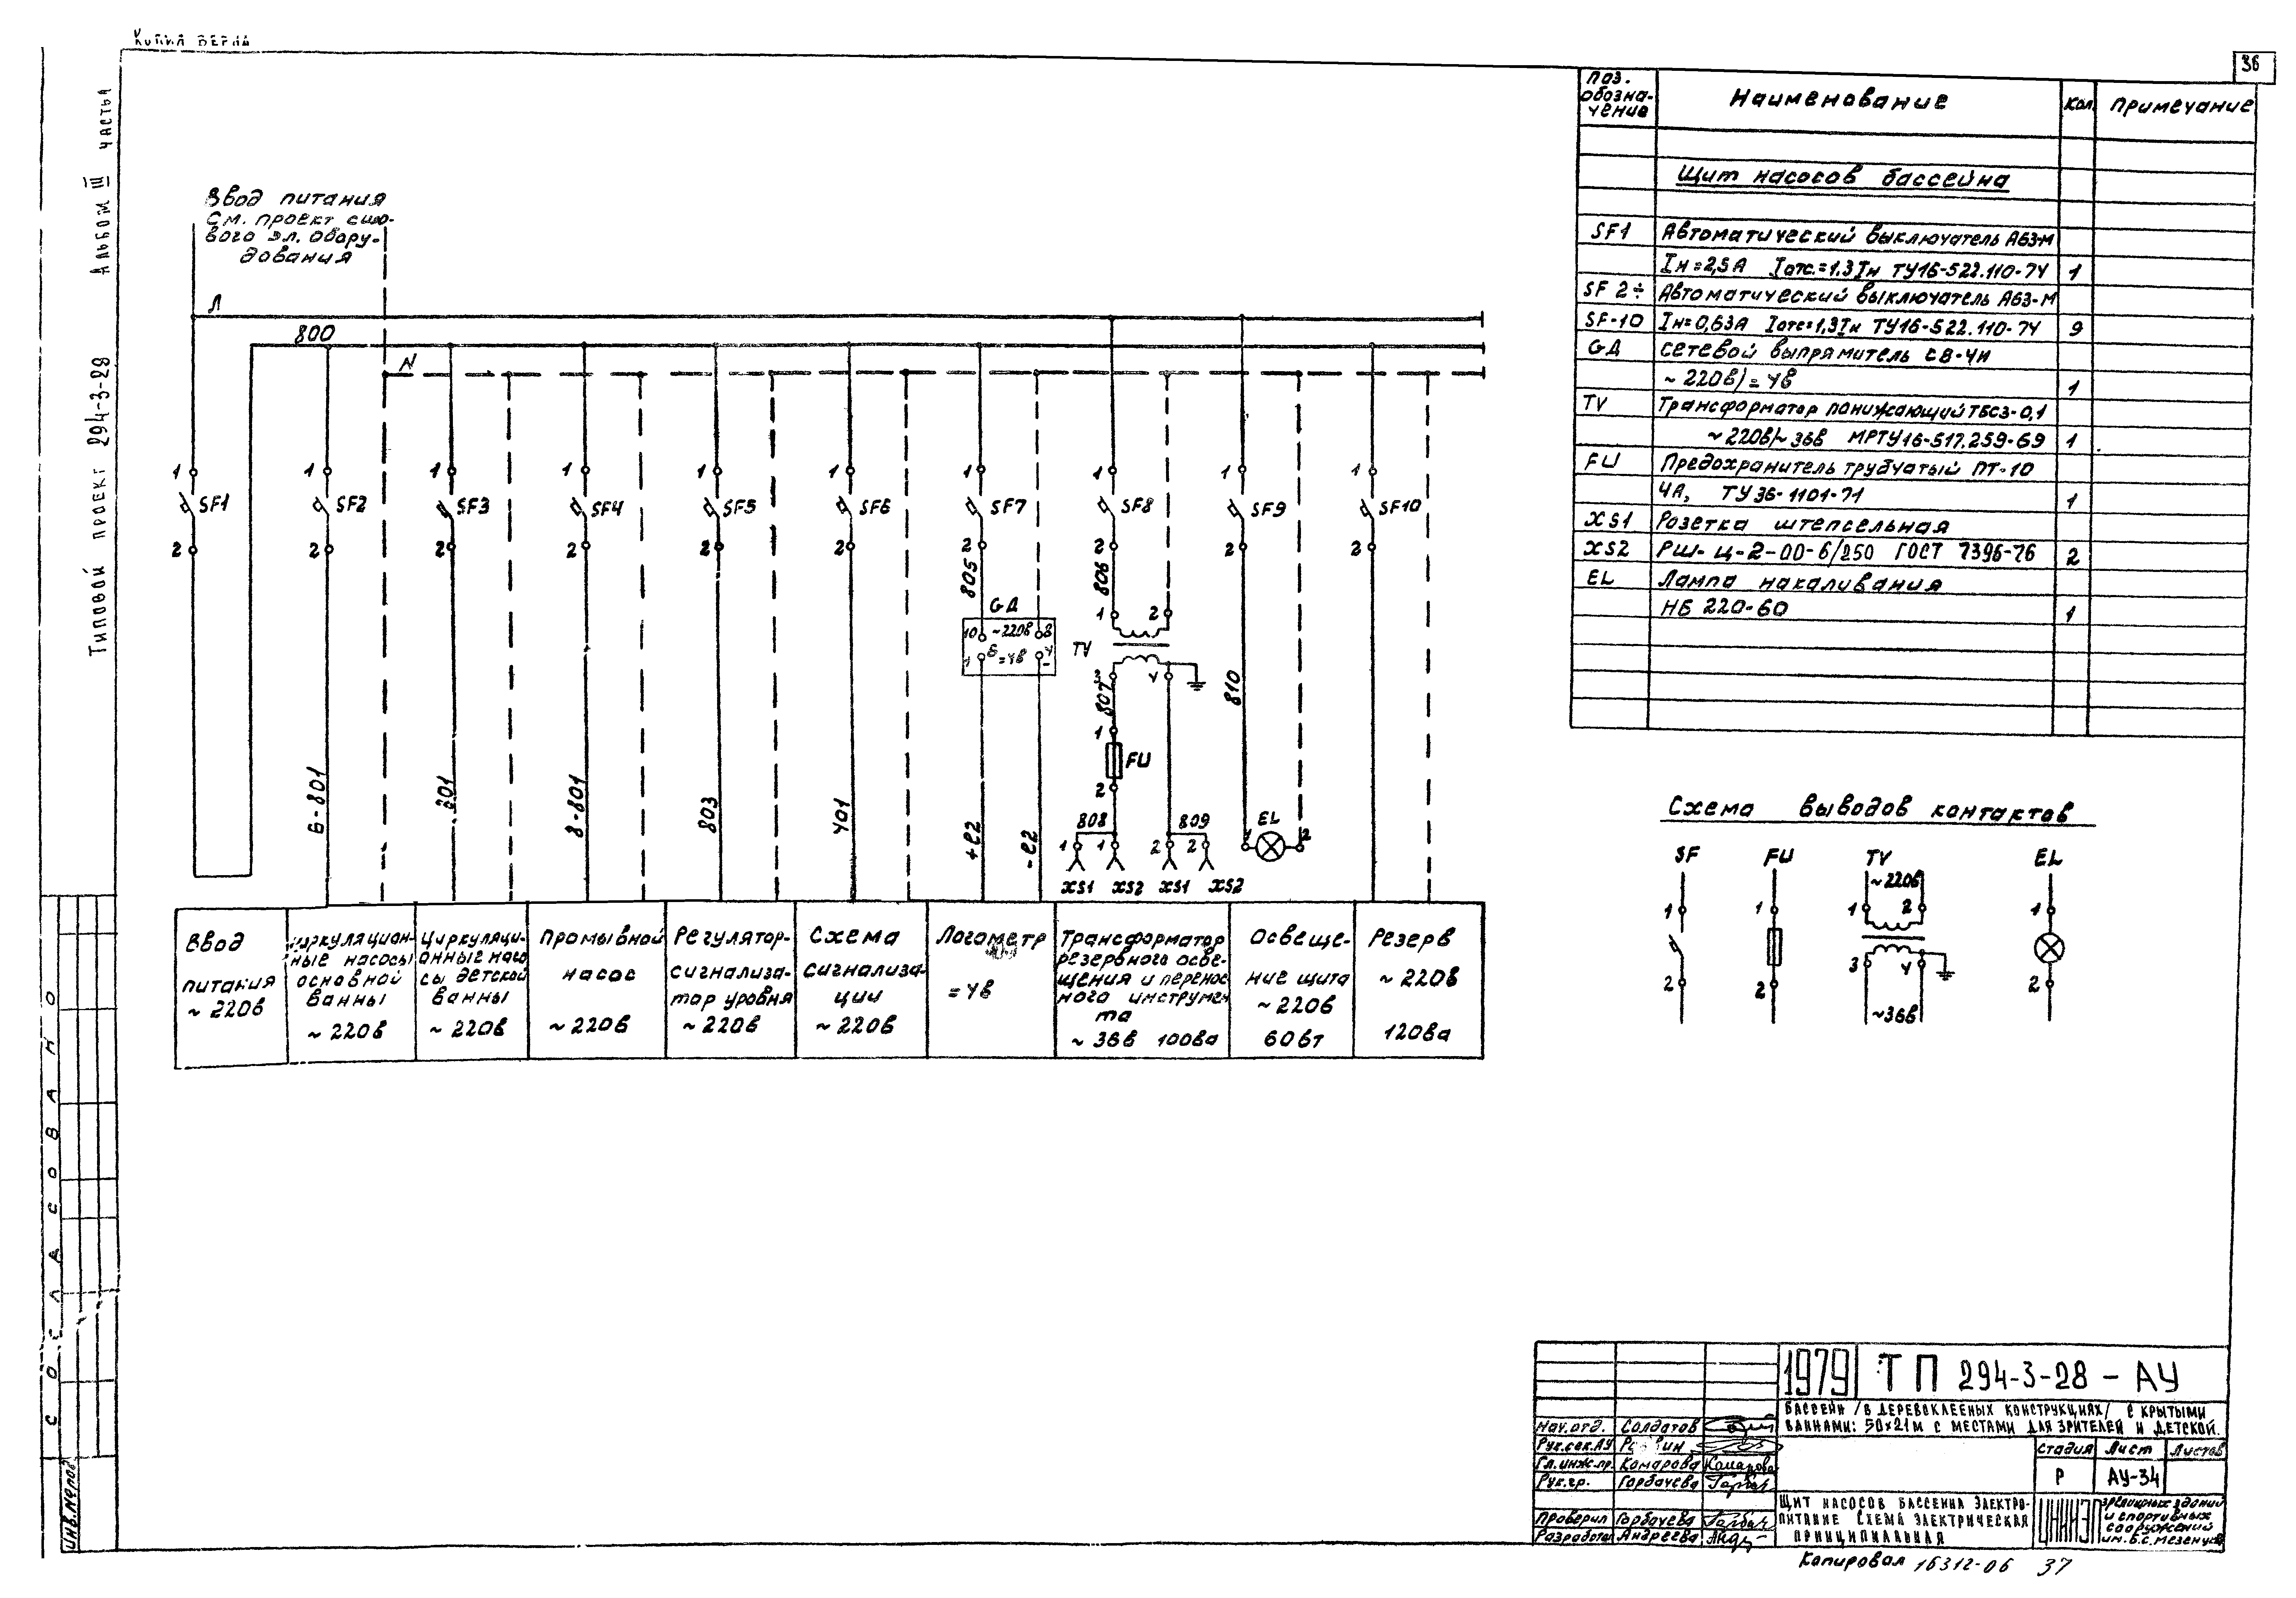 Копия верна
36
Типовой проект 294-3-28 Альбом III часть
Ввод питания
См. проект сило-
вого эл. обору-
дования
Л
800
N
1 1 1 1 1 1 1 1 1 1
SF1 SF2 SF3 SF4 SF5 SF6 SF7 SF8 SF9 SF10
2 2 2 2 2 2 2 2 2 2
805 806
GД
1 2
10 ~220в 8
=4в
TV
3 4
807
810
1
FU
2
6-801
801
8-801
803
401
+е2
-е2
808 809
EL
1 1 2 2 1 2
XS1 XS2 XS1 XS2
Ввод
питания
~ 220в
Циркуляцион-
ные насосы
основной
ванны
~ 220в
Циркуляци-
онные насо
сы детской
ванны
~ 220в
Промывной
насос
~ 220в
Регулятор-
сигнализа-
тор уровня
~ 220в
Схема
сигнализа-
ции
~ 220в
Логометр
=4в
Трансформатор
резервного осве-
щения и перенос
ного инструмен
та
~ 36в 100ва
Освеще-
ние щита
~ 220в
60вт
Резерв
~ 220в
120ва
Поз. обозна- чение Наименование Кол. Примечание
Щит насосов бассейна
SF1 Автоматический выключатель А63-М
Iн=2,5А Iотс.=1,3Iн ТУ16-522.110-74 1
SF 2÷ Автоматический выключатель А63-М
SF-10 Iн=0,63А Iотс=1,3Iн ТУ16-522.110-74 9
GД Сетевой выпрямитель СВ-4И
~ 220в/=4в 1
TV Трансформатор понижающий ТБС3-0,1
~220в/~36в МРТУ16-517.259-69 1
FU Предохранитель трубчатый ПТ-10
4А, ТУ36-1101-71 1
XS1 Розетка штепсельная
XS2 РШ-Ц-2-00-6/250 ГОСТ 7396-76 2
EL Лампа накаливания
НБ 220-60 1
Схема выводов контактов
SF FU TV EL
~220в
1 1 1 2 1
2 2 3 4 2
~36в
СОГЛАСОВАНО
Инв.№ подл
1979 ТП 294-3-28 - АУ
Бассейн /в деревоклееных конструкциях/ с крытыми
ваннами: 50х21м с местами для зрителей и детской.
Нач.отд. Солдатов
Рук.сек.АУ
Гл.инж.пр. Комарова Комарова
Рук.гр. Горбачева
Проверил Горбачева
Разработал Андреева
Стадия Лист Листов
Р АУ-34
Щит насосов бассейна электро-
питание схема электрическая
принципиальная
ЦНИИЭП зрелищных зданий
и спортивных
сооружений
им. Б.С. Мезенцева
Копировал 16312-06 37